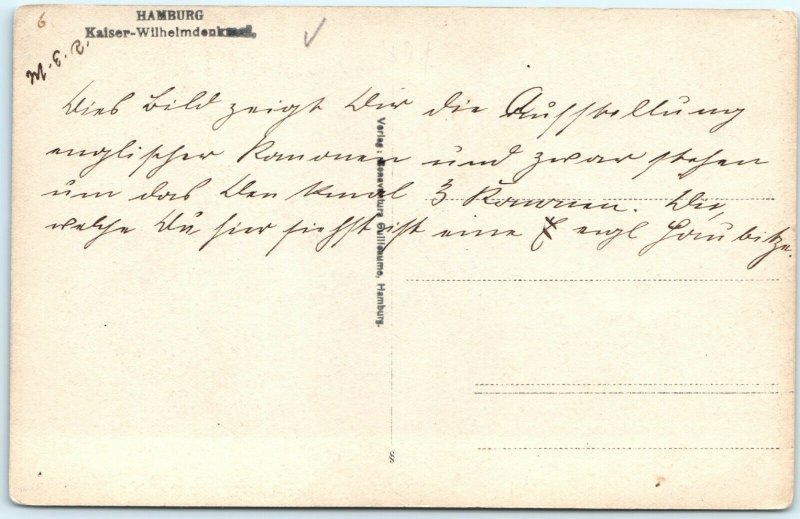 6
HAMBURG
Kaiser-Wilhelmdenkmal,
Dies Bild zeigt Dir die Aufstellung
englischer Kanonen und zwar stehen
um das Denkmal 3 Kanonen. Die,
welche Du hier siehst ist eine engl Haubitze.
Verlag: Bonaventura Guillaume, Hamburg.
§